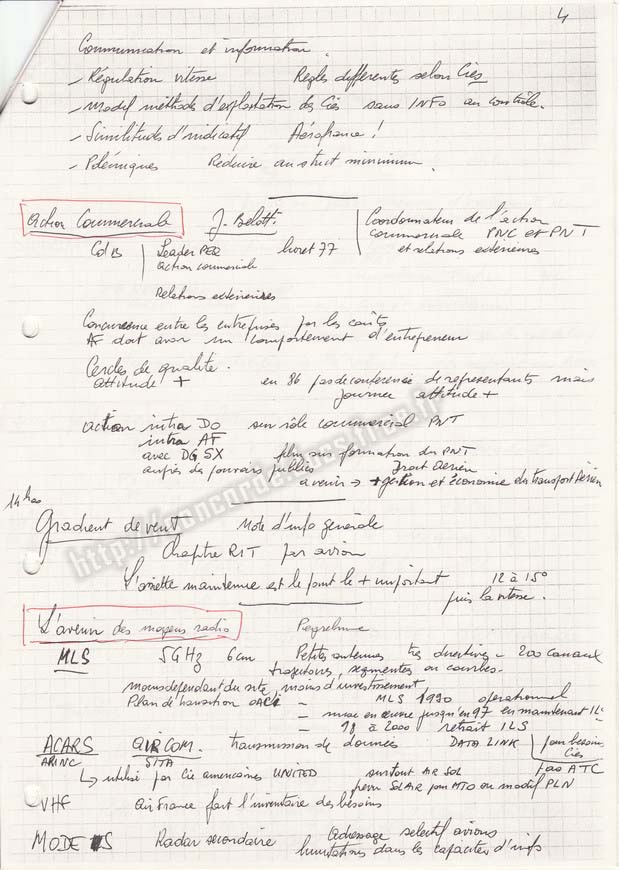 4
Communication et information.
- Régulation vitesse Règles différentes selon Cies
- Modif méthode d'exploitation des Cies sans INFO au contrôle.
- Similitudes d'indicatif Aérofrance !
- Polémiques Réduire au strict minimum.
Action Commerciale J. Belotti Coordonnateur de l'action
commerciale PNC et PNT
et relations extérieures
CdB Leader PEQ livret 77
action commerciale
Relations extérieures
Concurrence entre les entreprises par les coûts
AF doit avoir un comportement d'entrepreneur
Cercles de qualité.
attitude + en 86 pas de conférence de représentants mais
journée attitude +
action intra DO sur rôle commercial PNT
intra AF
avec DG SX film sur formation du PNT
auprès des pouvoirs publics Droit Aérien
avenir → + gestion et économie du transport Aérien
14h00
Gradient de vent Note d'info générale
Chapitre R1T par avion
L'assiette maintenue est le point le + important 12 à 15°
puis la vitesse.
L'avenir des moyens radio
MLS 5GHz 6cm Petites antennes très directives - 200 canaux
trajectoires segmentées ou courbes.
moins dépendant du site, moins d'investissement
Plan de transition OACI - MLS 1990 opérationnel
- mise en œuvre jusqu'en 97 en maintenant ILS
- 98 à 2000 retrait ILS
ACARS AIRCOM. transmission de données DATA LINK pour besoins
Cies
ARINC SITA pas ATC
↳ utilisé par Cie américaines UNITED surtout AIR SOL
peu SOL AIR pour MTO ou modif PLN
VHF Air France fait l'inventaire des besoins
MODE S Radar secondaire Adressage sélectif avions
limitations dans les capacités d'info
http://concorde